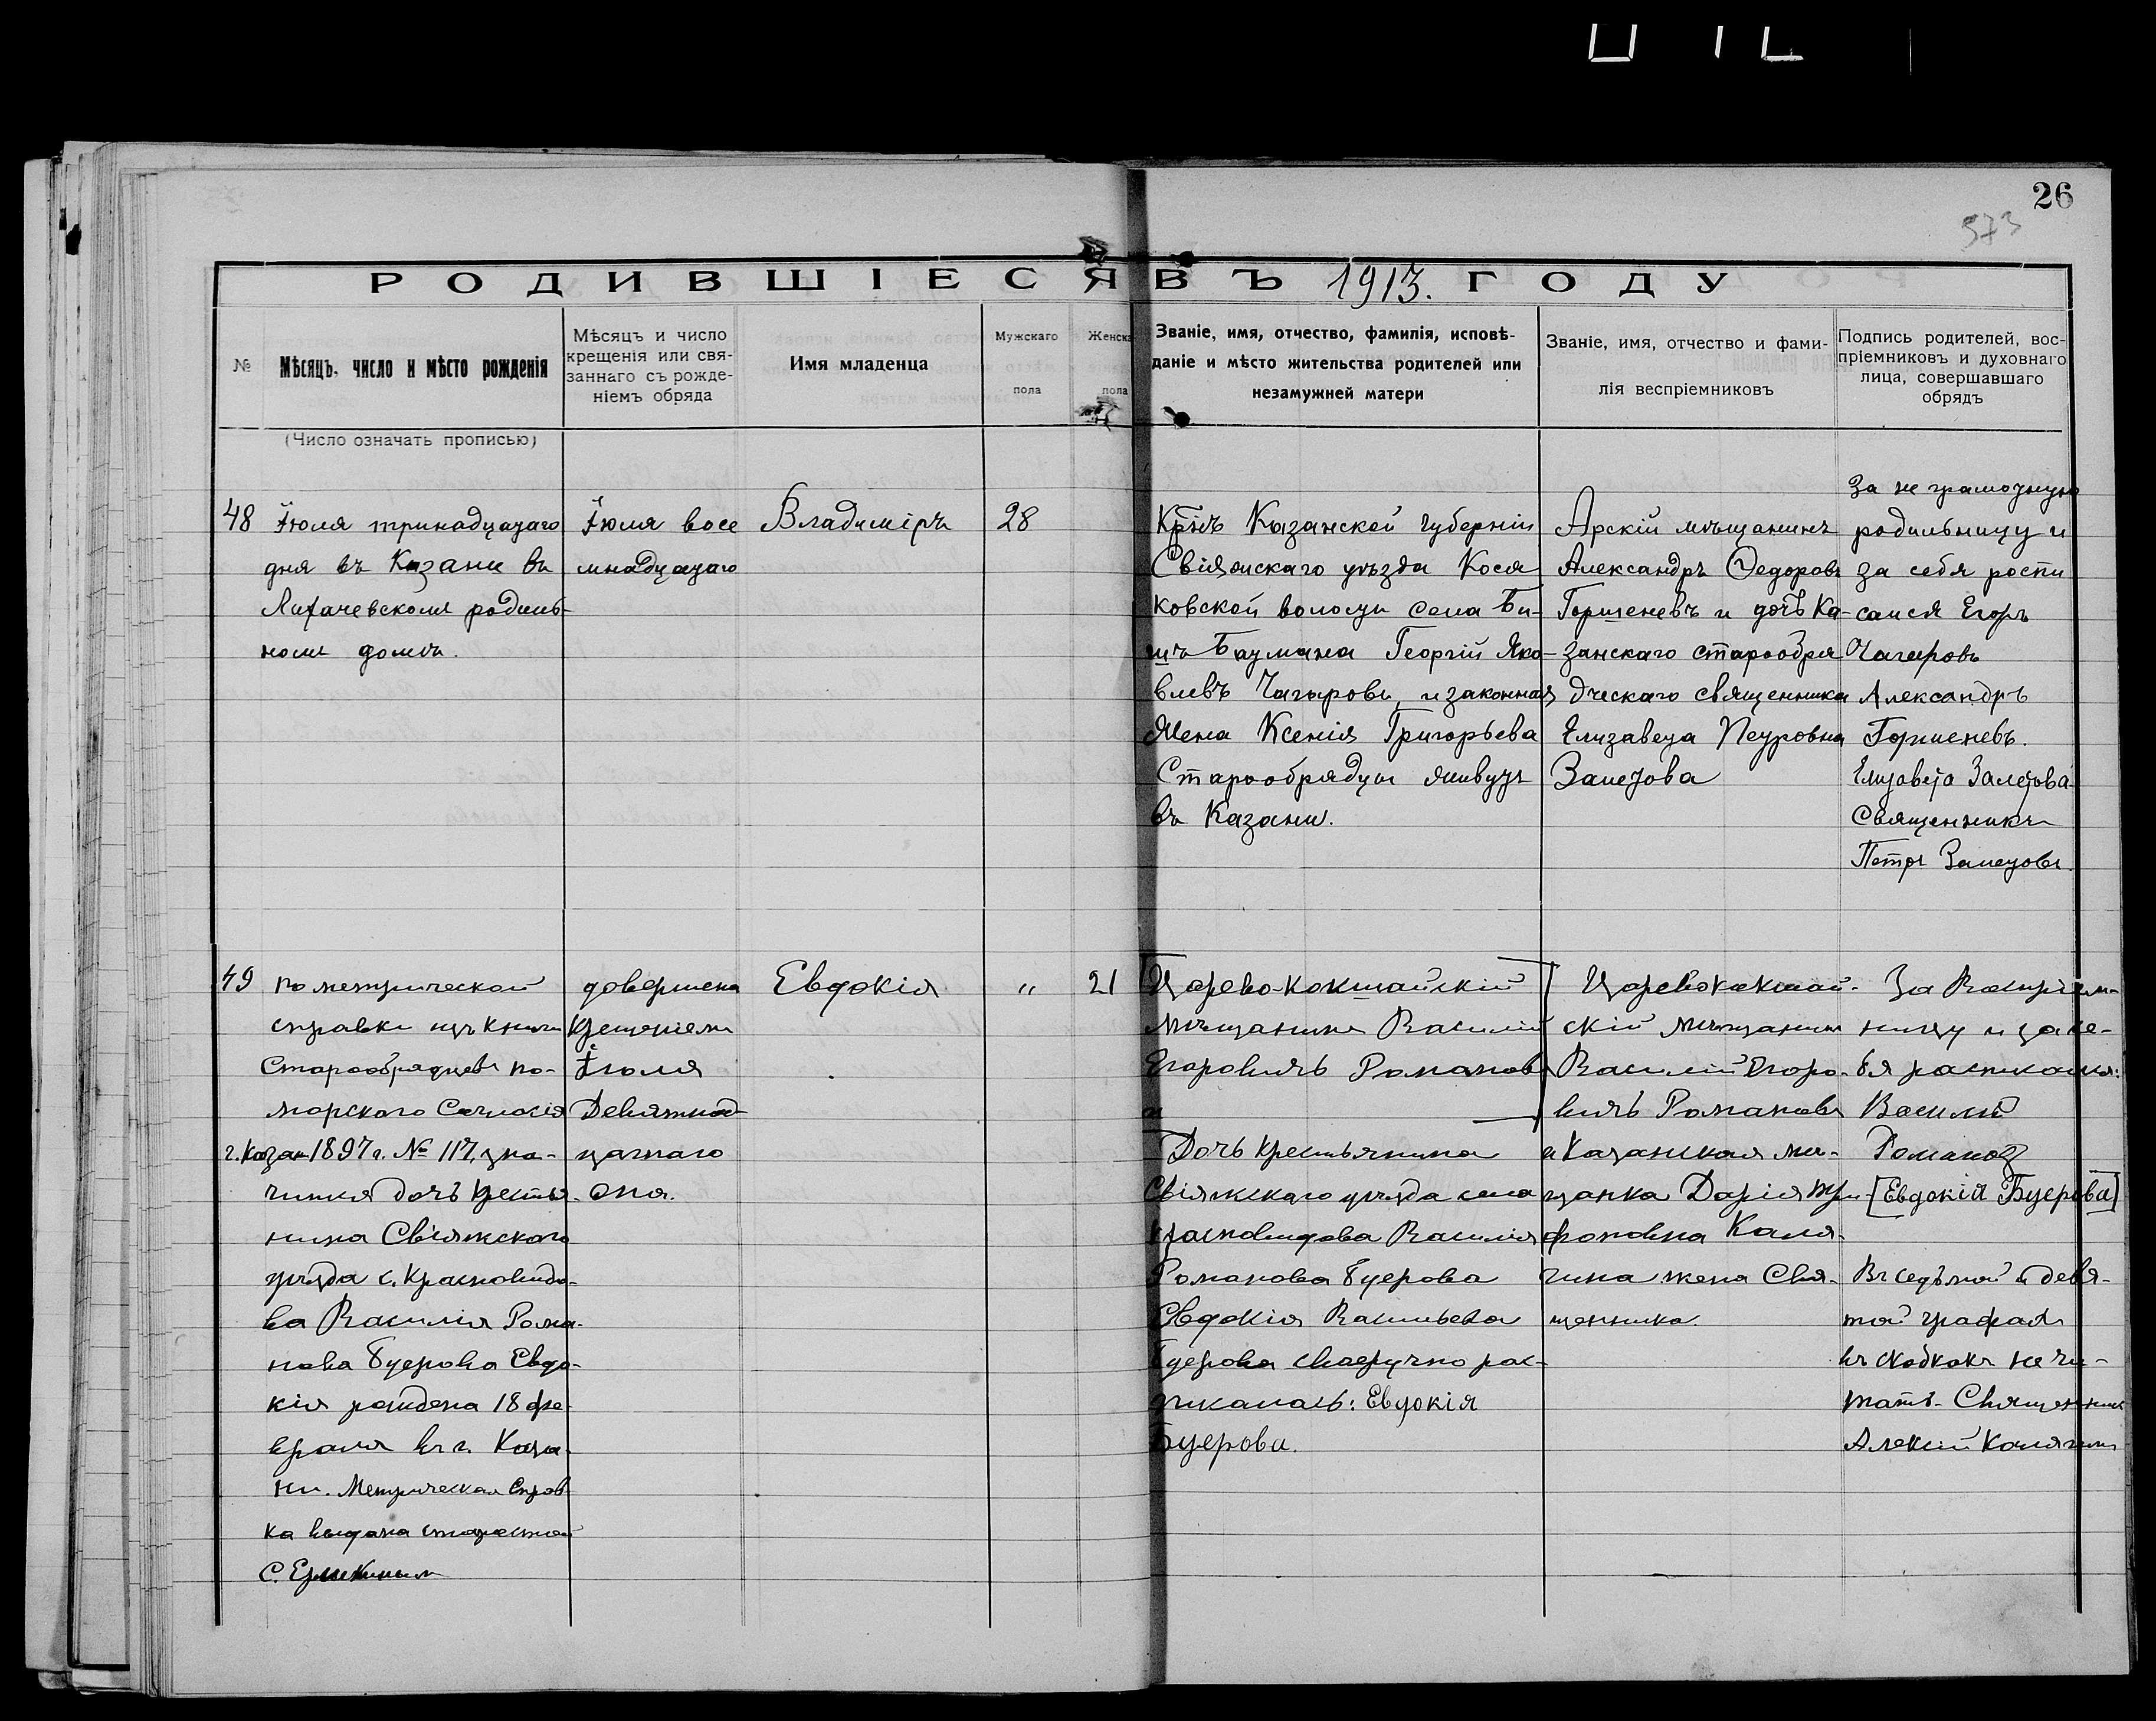 26
573
РОДИВШIЕСЯ ВЪ 1913. ГОДУ
№
Мѣсяцъ, число и мѣсто рожденiя
(Число означать прописью)
Мѣсяцъ и число
крещенiя или свя-
заннаго съ рожде-
нiемъ обряда
Имя младенца
Мужскаго
пола
Женска
пола
Званiе, имя, отчество, фамилiя, исповѣ-
данiе и мѣсто жительства родителей или
незамужней матери
Званiе, имя, отчество и фами-
лiя веспрiемниковъ
Подпись родителей, вос-
прiемниковъ и духовнаго
лица, совершавшаго
обрядъ
48
Iюля тринадцатаго
дня въ Казани въ
Лихачевскомъ родиль-
номъ домѣ.
Iюля восе
мнадцатаго
Владимiръ
28
Крiнъ Казанской губернiи
Свiяжскаго уѣзда Кося
ковской волости села Би-
шъ Баумана Георгiй Яко-
влевъ Чагыровъ, и законная
Жена Ксенiя Григорьева
Старообрядцы живутъ
въ Казани.
Арскiй мѣщанинъ
Александръ Ѳедоровъ
Горшеневъ и дочь Ка-
занскаго старообря
дческаго священника
Елизавета Петровна
Залетова
За не грамотную
родильницу и
за себя роспи
сался Егоръ
Чагыровъ
Александръ
Горшеневъ.
Елизавета Залетова
Священникъ
Петръ Залетовъ.
49
по метрической
справки изъ книги
Старообрядцевъ по-
морского Согласiя
г. Казан 1897 г. № 117, зна-
чится дочь крестья-
нина Свiяжскаго
уѣзда с. Красновидо-
ва Василiя Рома-
нова Буерова Евдо-
кiя рождена 18 фе-
враля въ г. Каза-
ни. Метрическая Справ-
ка выдана старостой
С.
довершена
крещенiем
Iюля
Девятнад-
цатаго
дня.
Евдокiя
"
21
Царево-кокшайскiй
мѣщанинъ Василiй
Егоровичъ Романовъ
и
Дочь крестьянина
Свiяжскаго уѣзда села
Красновидова Василiя
Романова Буерова
Евдокiя Васильева
Буерова своеручно рос-
писалась: Евдокiя
Буерова.
Царевококшай-
скiй мѣщанинъ
Василiй Егоро-
вичъ Романовъ
и Казанская мѣ-
щанка Дарiя Три-
фоновна Каля-
гина жена Свя-
щенника.
За Воспрiем-
ницу и за се-
бя росписался:
Василiй
Романов
[Евдокiй Буерова]
Въ седьмой и девя-
той графах
въ скобкахъ не чи-
тать. Священникъ
Алексiй Калягинъ